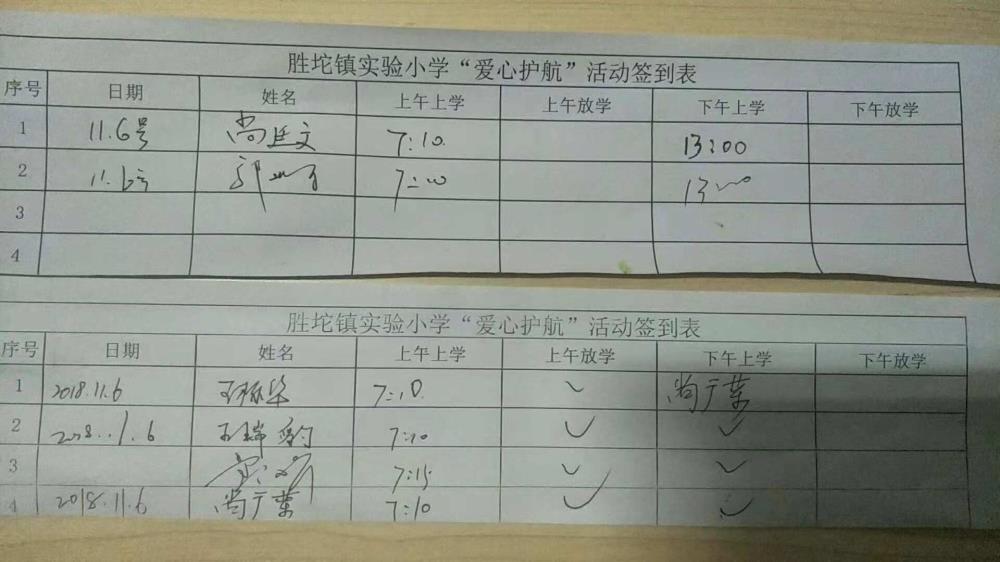 胜坨镇实验小学“爱心护航”活动签到表
序号 日期 姓名 上午上学 上午放学 下午上学 下午放学
1 11.6号 尚廷文 7:10 13:00
2 11.6号 郭 7:10 13:00
3
4
胜坨镇实验小学“爱心护航”活动签到表
序号 日期 姓名 上午上学 上午放学 下午上学 下午放学
1 2018.11.6 7:10 ✓ 尚广荣
2 2018.11.6 7:10 ✓ ✓
3 7:15 ✓ ✓
4 2018.11.6 尚广荣 7:10 ✓ ✓